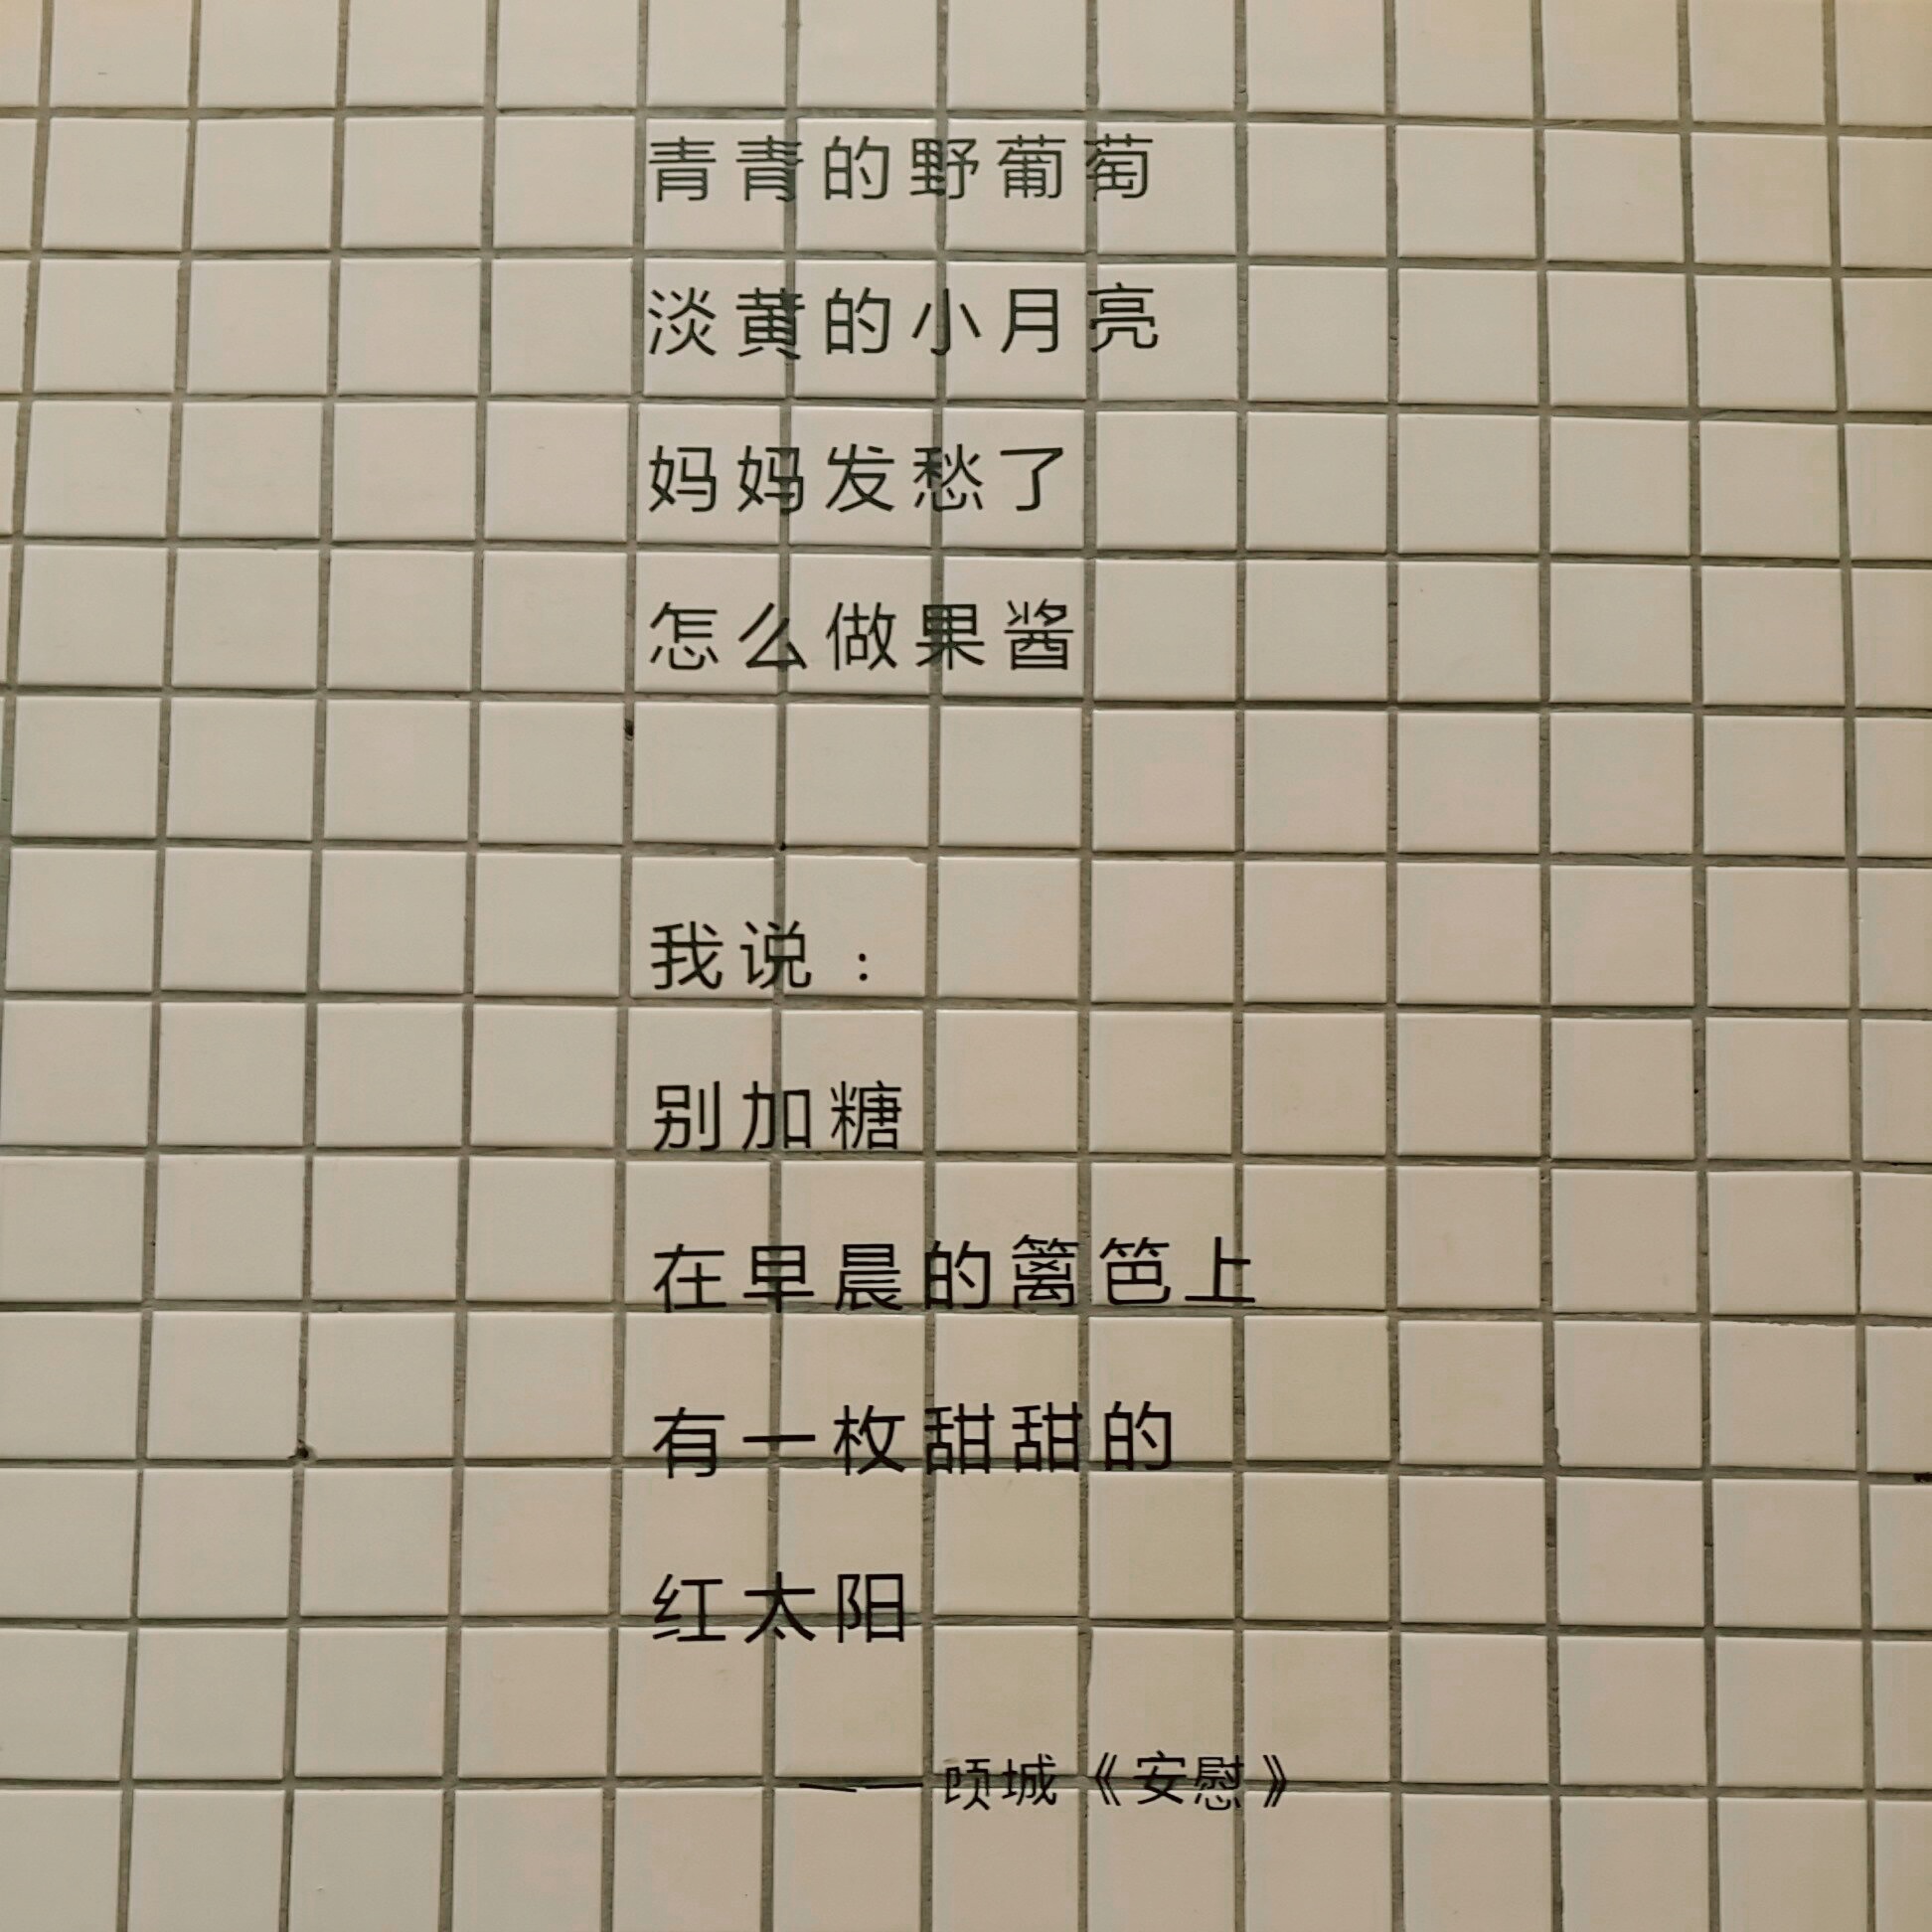 青青的野葡萄
淡黄的小月亮
妈妈发愁了
怎么做果酱
我说：
别加糖
在早晨的篱笆上
有一枚甜甜的
红太阳
——顾城《安慰》